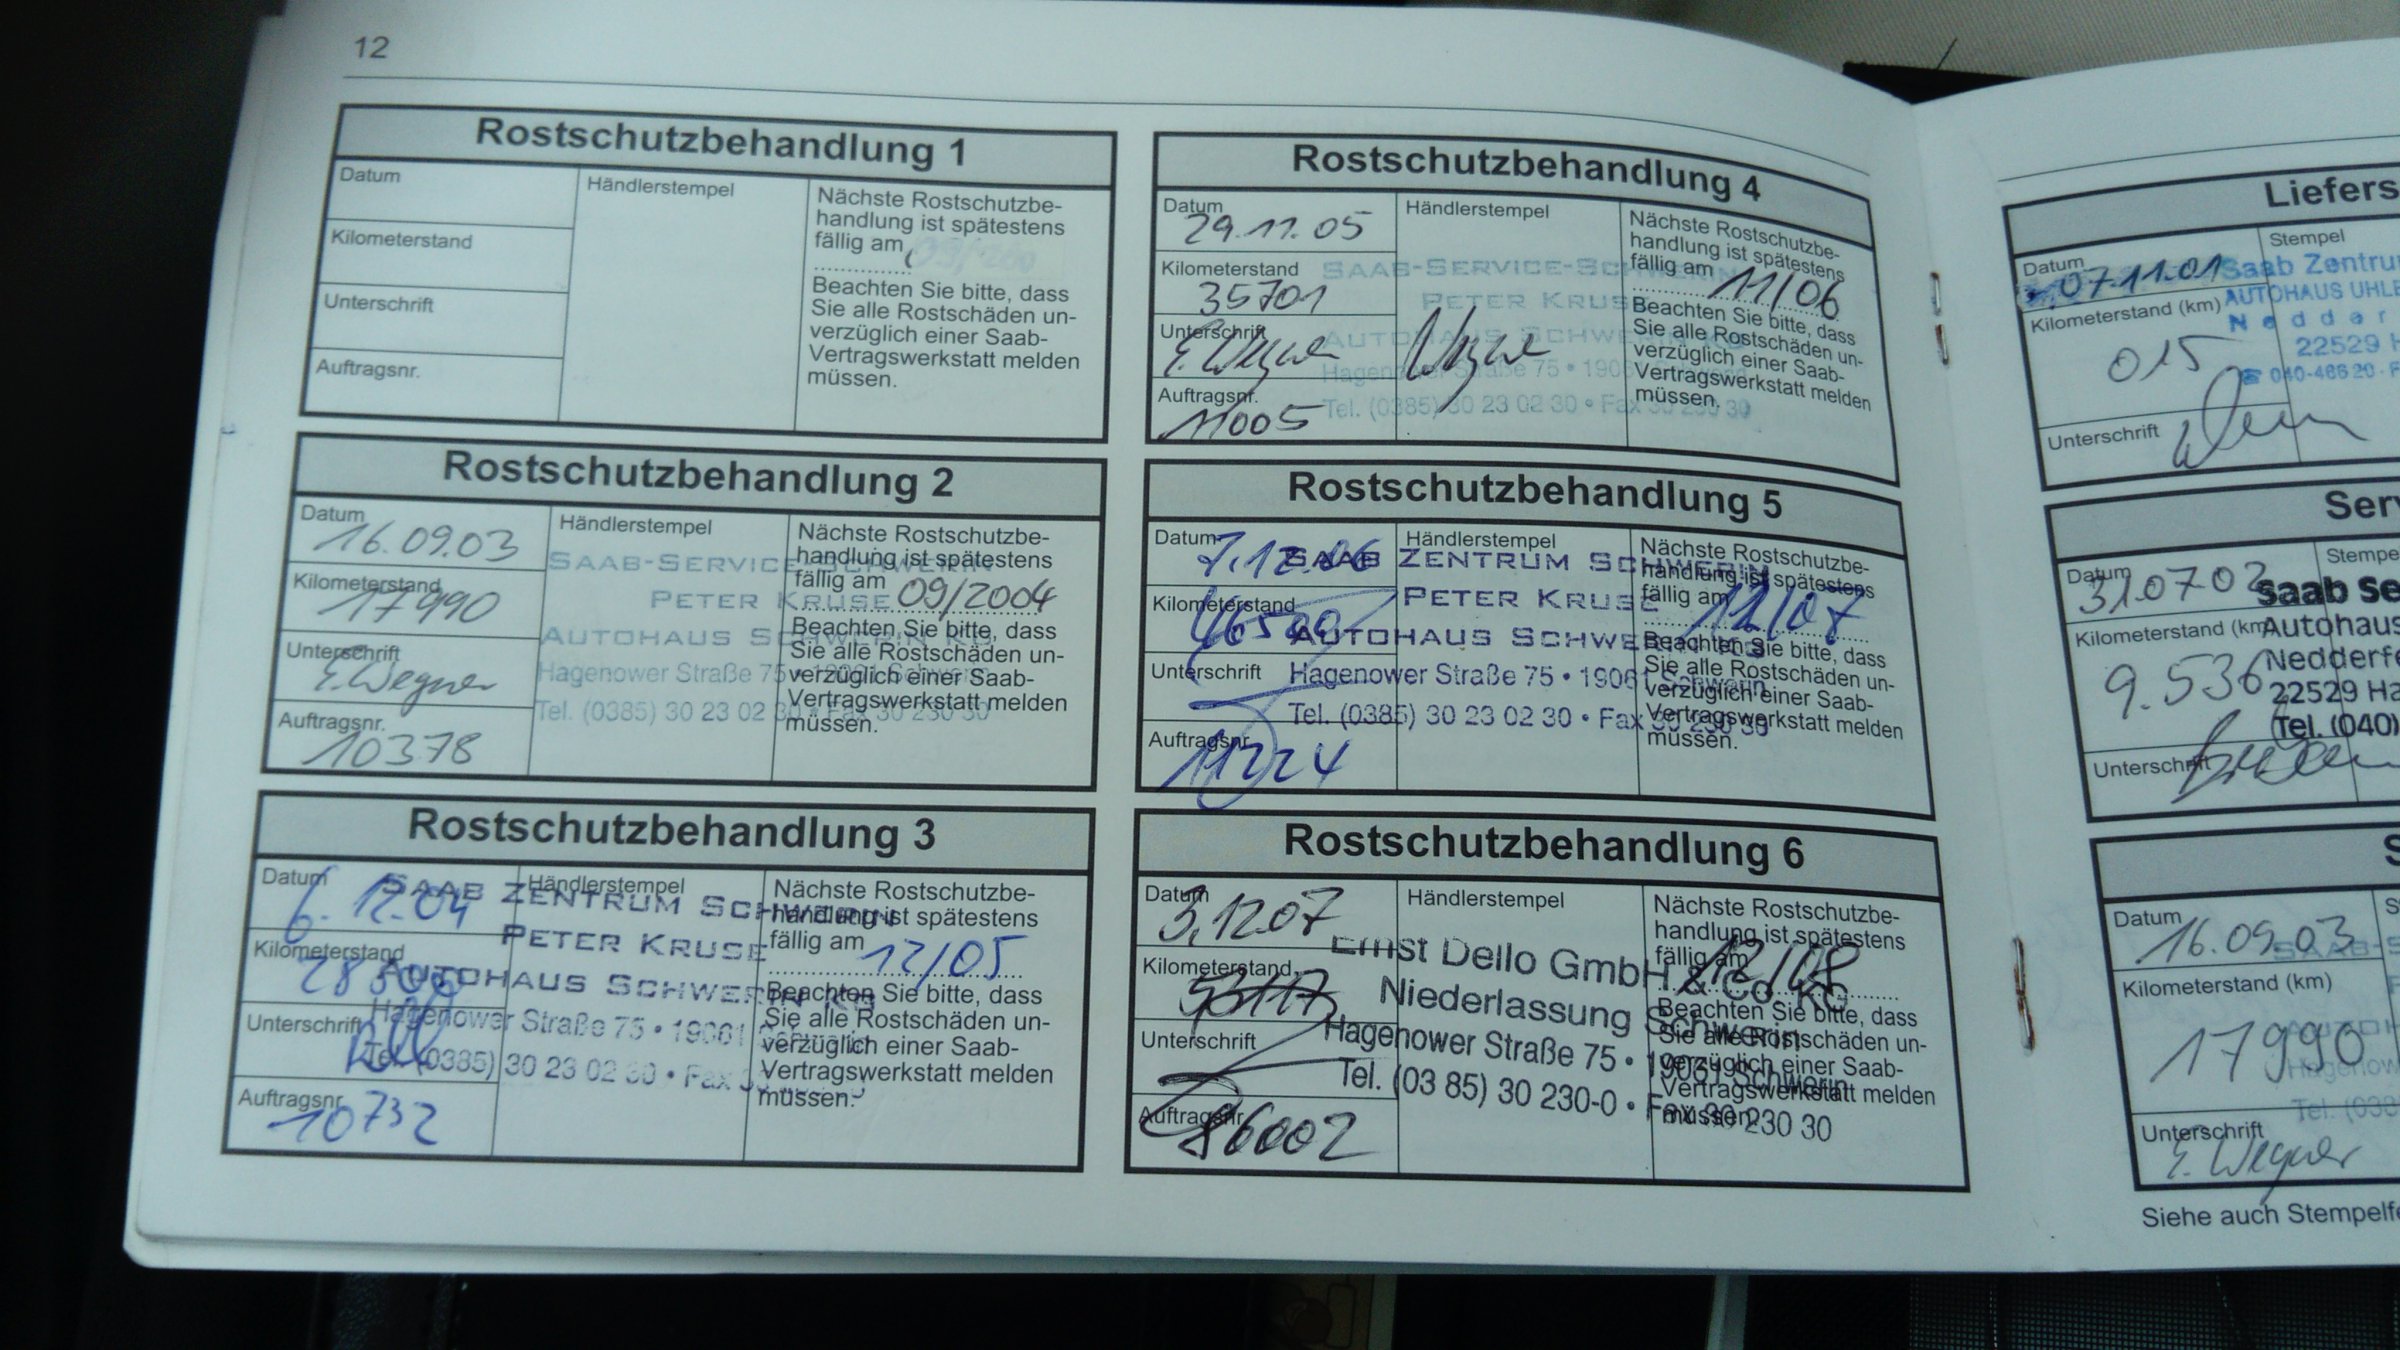 12
Rostschutzbehandlung 1
Datum
Kilometerstand
Unterschrift
Auftragsnr.
Händlerstempel
Nächste Rostschutzbe-
handlung ist spätestens
fällig am
Beachten Sie bitte, dass
Sie alle Rostschäden un-
verzüglich einer Saab-
Vertragswerkstatt melden
müssen.
Rostschutzbehandlung 2
Datum
16.09.03
Kilometerstand
17990
Unterschrift
E. Wegner
Auftragsnr.
10378
Händlerstempel
SAAB-SERVICE-SCHWERIN
PETER KRUSE
AUTOHAUS SCHWERIN KG
Hagenower Straße 75 • 19061 Schwerin
Tel. (0385) 30 23 02 30 • Fax 30 230 30
Nächste Rostschutzbe-
handlung ist spätestens
fällig am 09/2004
Beachten Sie bitte, dass
Sie alle Rostschäden un-
verzüglich einer Saab-
Vertragswerkstatt melden
müssen.
Rostschutzbehandlung 3
Datum
6.12.04
Kilometerstand
Unterschrift
Auftragsnr.
10732
Händlerstempel
SAAB ZENTRUM SCHWERIN
PETER KRUSE
AUTOHAUS SCHWERIN KG
Hagenower Straße 75 • 19061 Schwerin
Tel. (0385) 30 23 02 30 • Fax 30 230 30
Nächste Rostschutzbe-
handlung ist spätestens
fällig am 12/05
Beachten Sie bitte, dass
Sie alle Rostschäden un-
verzüglich einer Saab-
Vertragswerkstatt melden
müssen.
Rostschutzbehandlung 4
Datum
29.11.05
Kilometerstand
35701
Unterschrift
E. Wegner
Auftragsnr.
11005
Händlerstempel
SAAB-SERVICE-SCHWERIN
PETER KRUSE
AUTOHAUS SCHWERIN KG
Hagenower Straße 75 • 19061 Schwerin
Tel. (0385) 30 23 02 30 • Fax 30 230 30
Wegner
Nächste Rostschutzbe-
handlung ist spätestens
fällig am 11/06
Beachten Sie bitte, dass
Sie alle Rostschäden un-
verzüglich einer Saab-
Vertragswerkstatt melden
müssen.
Rostschutzbehandlung 5
Datum
7.12.06
Kilometerstand
46500
Unterschrift
Auftragsnr.
11224
Händlerstempel
SAAB ZENTRUM SCHWERIN
PETER KRUSE
AUTOHAUS SCHWERIN KG
Hagenower Straße 75 • 19061 Schwerin
Tel. (0385) 30 23 02 30 • Fax 30 230 30
Nächste Rostschutzbe-
handlung ist spätestens
fällig am 12/07
Beachten Sie bitte, dass
Sie alle Rostschäden un-
verzüglich einer Saab-
Vertragswerkstatt melden
müssen.
Rostschutzbehandlung 6
Datum
3.12.07
Kilometerstand
53117
Unterschrift
Auftragsnr.
86002
Händlerstempel
Ernst Dello GmbH & Co. KG
Niederlassung Schwerin
Hagenower Straße 75 • 19061 Schwerin
Tel. (03 85) 30 230-0 • Fax 30 230 30
Nächste Rostschutzbe-
handlung ist spätestens
fällig am 12/08
Beachten Sie bitte, dass
Sie alle Rostschäden un-
verzüglich einer Saab-
Vertragswerkstatt melden
müssen.
Liefers
Datum
07.11.01
Kilometerstand (km)
015
Unterschrift
Stempel
Saab Zentru
AUTOHAUS UHLE
Neddar
22529 H
☎ 040-466 20 · F
Ser
Datum
31.07.02
Kilometerstand (km)
9.536
Unterschrift
Stempe
Saab Se
Autohaus
Nedderfe
22529 Ha
Tel. (040)
S
Datum
16.09.03
Kilometerstand (km)
17990
Unterschrift
E. Wegner
S
SAAB-S
AUTOH
Hagenow
Tel. (038
Siehe auch Stempelfe